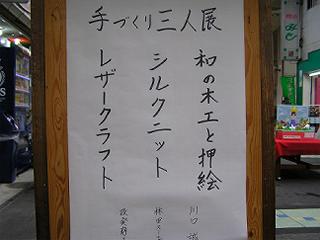 手づくり三人展
和の木工と押絵
川口
シルクニット
レザークラフト